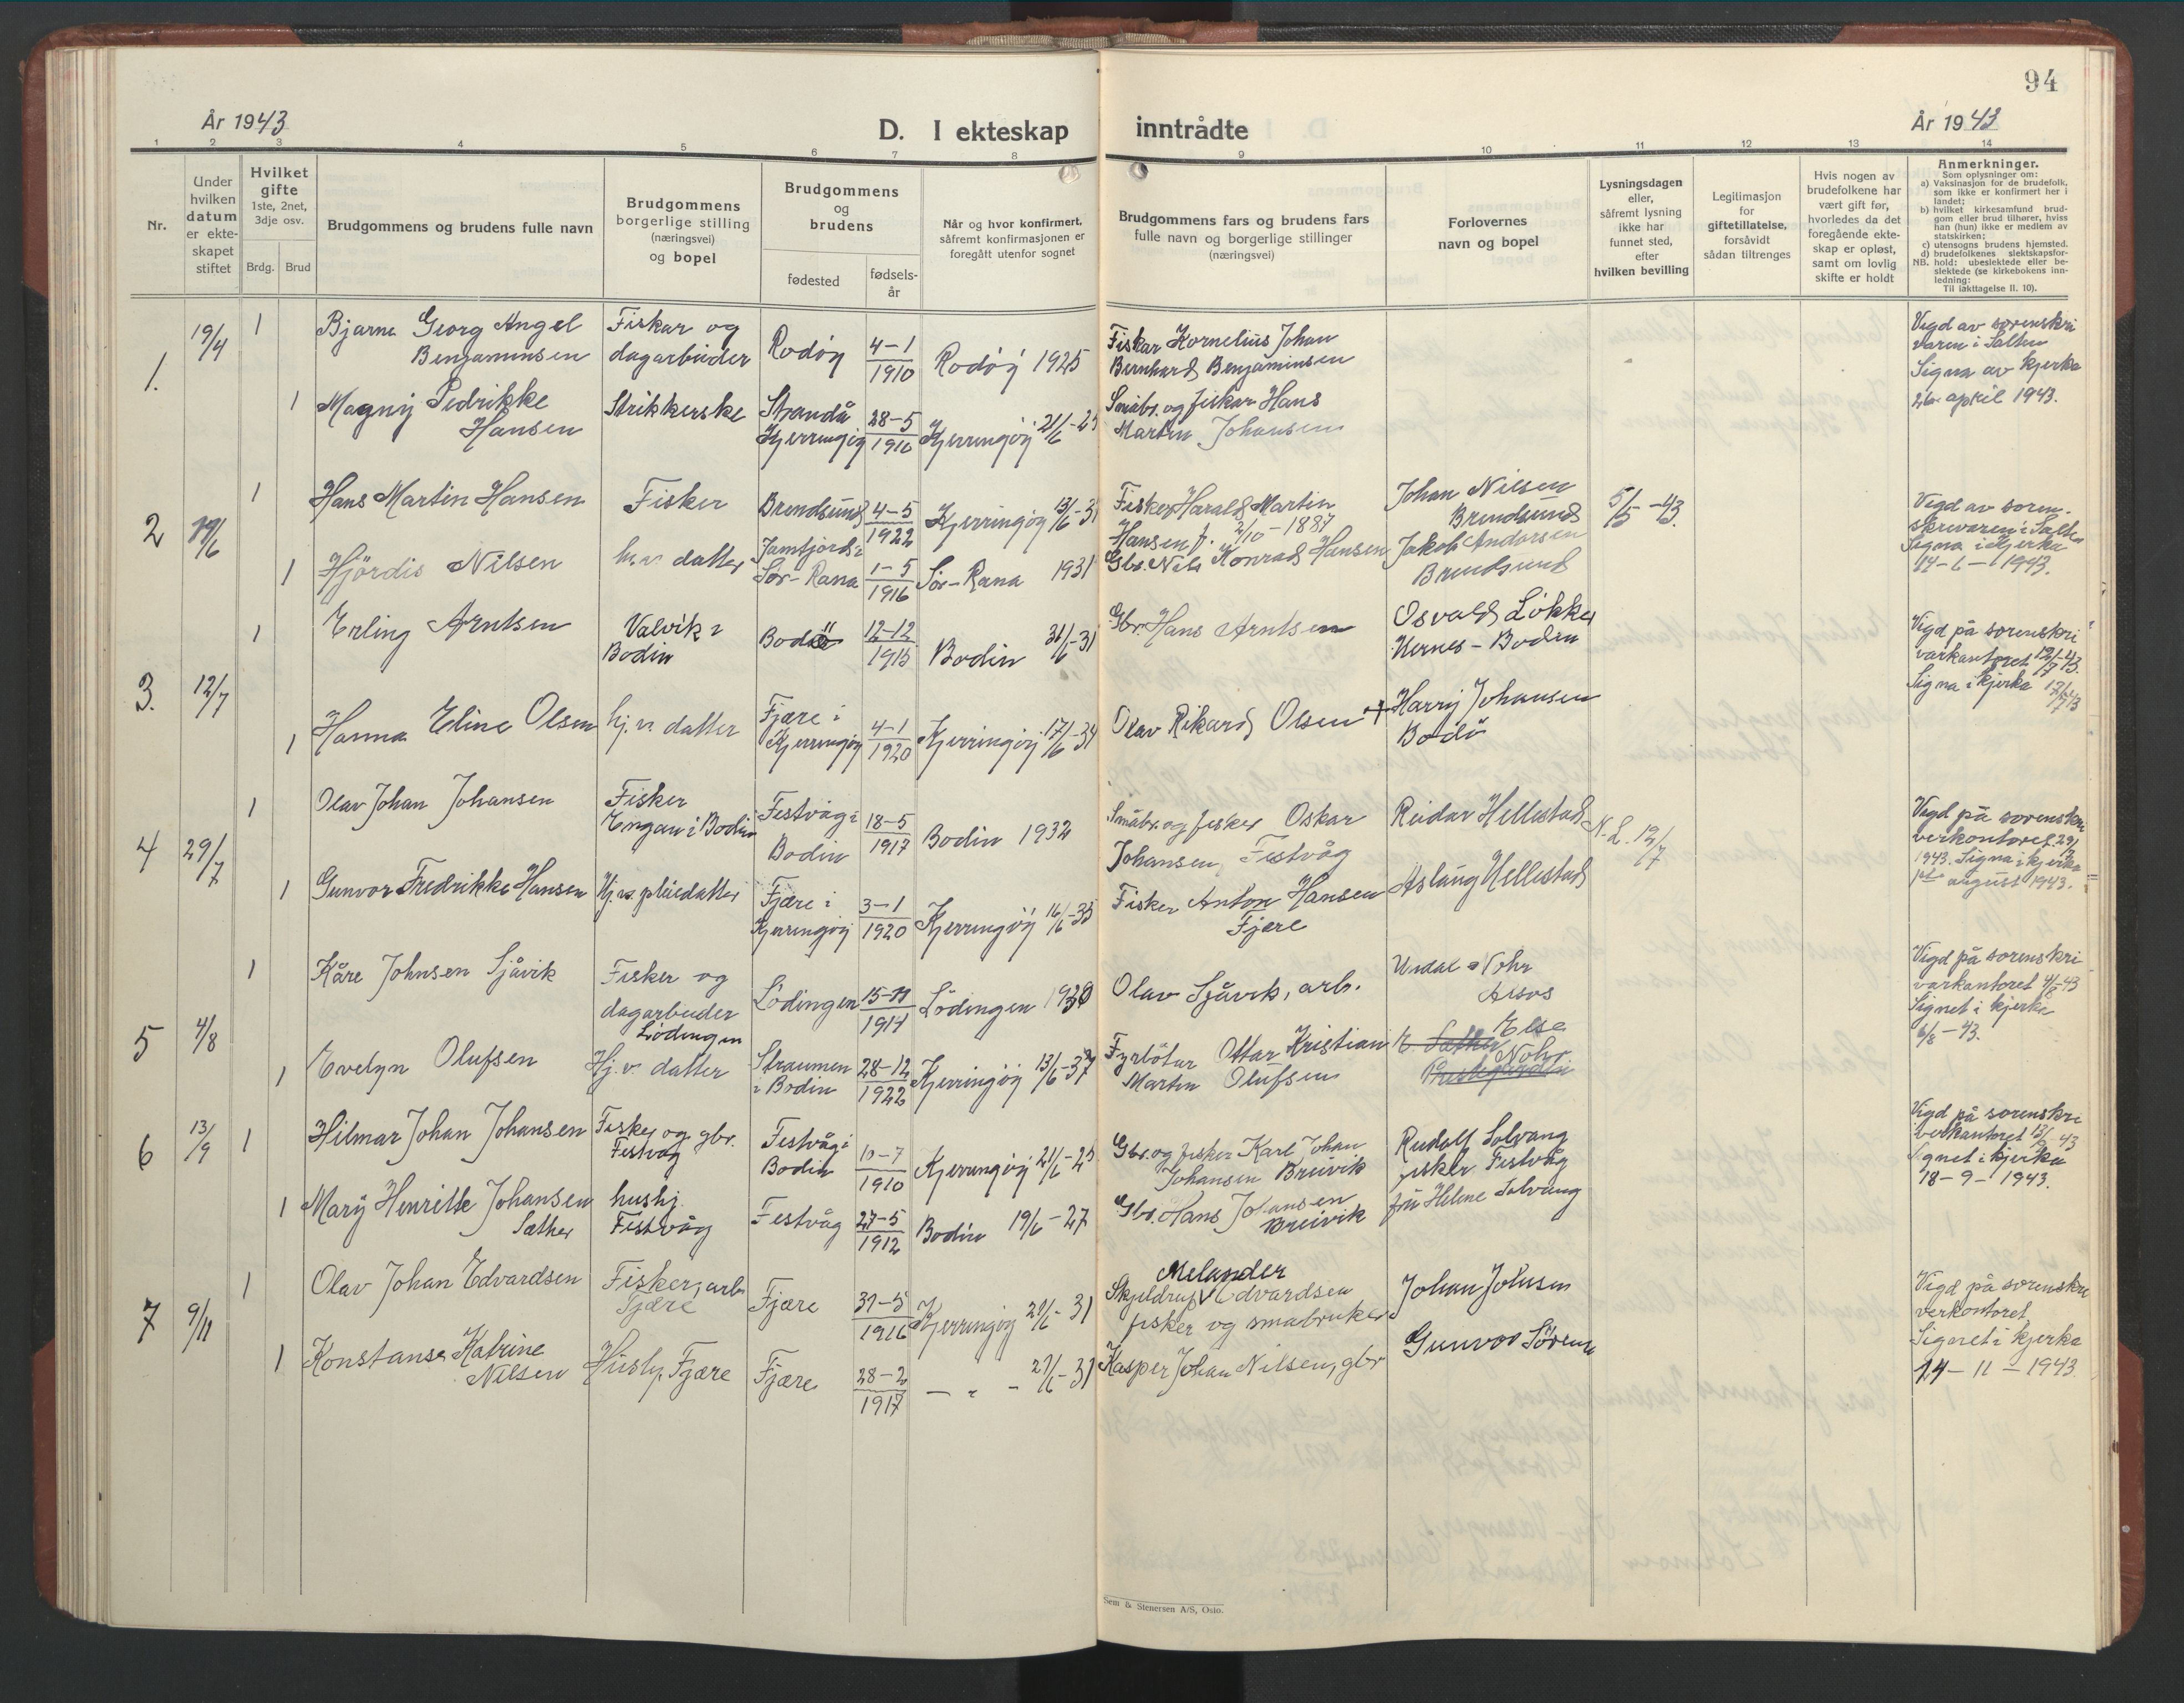 94
År 1943
D. I ekteskap inntrådte
År 1943
1 2 3 4 5 6 7 8 9 10 11 12 13 14
Nr.
Under
hvilken
datum
er ekte-
skapet
stiftet
Hvilket
gifte
1ste, 2net,
3dje osv.
Brdg. Brud
Brudgommens og brudens fulle navn
Brudgommens
borgerlige stilling
(næringsvei)
og bopel
Brudgommens
og
brudens
fødested
fødsels-
år
Når og hvor konfirmert,
såfremt konfirmasjonen er
foregått utenfor sognet
Brudgommens fars og brudens fars
fulle navn og borgerlige stillinger
(næringsvei)
Forlovernes
navn og bopel
Lysningsdagen
eller,
såfremt lysning
ikke har
funnet sted,
efter
hvilken bevilling
Legitimasjon
for
giftetillatelse,
forsåvidt
sådan tiltrenges
Hvis nogen av
brudefolkene har
vært gift før,
hvorledes da det
foregående ekte-
skap er opløst,
samt om lovlig
skifte er holdt
Anmerkninger.
Som oplysninger om:
a) Vaksinasjon for de brudefolk,
som ikke er konfirmert her i
landet;
b) hvilket kirkesamfund brud-
gom eller brud tilhører, hviss
han (hun) ikke er medlem av
statskirken;
c) utensogns brudens hjemsted.
d) brudefolkenes slektskapsfor-
NB. hold: ubeslektede eller be-
slektede (se kirkebokens inn-
ledning:
Til iakttagelse II. 10).
1. 19/4 1 Bjarne Georg Angel
Benjaminsen
Fiskar og
dagarbeider
Rødøy 4-1
1910
Rødøy 1925
Fiskar Kornelius Johan
Bernhard Benjaminsen
Vigd av sorenskri
varen i Salten
Signa av kjerka
26. april 1943.
1 Magny Pedrikke
Hansen
Strikkerske
Strandå
Kjerringøy
28-5
1910
Kjerringøy 21/6-25
Småbr. og fiskar Hans
Martin Johansen
2 19/6 1 Hans Martin Hansen
Fisker
Brendsund 4-5
1922
Kjerringøy 13/6-31
Fisker Harald Martin
Hansen f. 2/10-1887
Johan Nilsen
Brendsund
5/5-43.
Vigd av soren-
skrivaren i Salten
Signa i kjerka
19-6-1943.
1 Hjördis Nilsen
h.v. datter
Jamtjord i
Sør-Rana
1-5
1916
Sør-Rana 1931
Gbr. Nils Konrad Hansen
Jakob Andorsen
Brendsund
3. 12/7 1 Erling Arntsen
Valvik i
Bodin
Bodö
12-12
1915
Bodin 31/6-31
Gbr. Hans Arntsen
Osvald Løkke
Hernes-Bodin
Vigd på sorenskri
varkontoret 12/7-43.
Signa i kjerka 12/7-43
1 Hanna Eline Olsen
hj.v. datter
Fjære i
Kjerringøy
4-1
1920
Kjerringöy 17/6-34
Olav Rikard Olsen +
Harry Johansen
Bodö
4 29/7 1 Olav Johan Johansen
Fisker
Engan i Bodin
Festvåg i
Bodin
18-5
1917
Bodin 1932
Småbr. og fisker Oskar
Johansen, Festvåg
Reidar Hellestad
N.L. 12/7
Vigd på sorenskri
verkontoret 29/7
1943. Signa i kjerka
1ste august 1943.
1 Gunvor Fredrikke Hansen
Hj.v. pleiedatter
Fjære i
Kjerringöy
3-1
1920
Kjerringöy 16/6-35
Fisker Anton Hansen
Fjære
Aslaug Hellestad
5 4/8 1 Kåre Johnsen Sjåvik
Fisker og
dagarbeider
Lödingen
Lödingen 15-11
1914
Lödingen 1930
Olav Sjåvik, arb.
Nohr
Vigd på sorenskri
varkontoret 4/8-43
Signet i kjerka
6/8-43.
1 Evelyn Olufsen
Hj.v. datter
Straumen
i Bodin
28-12
1922
Kjerringöy 13/6-37
Fyrbötar Ottar Kristian
Martin Olufsen
Else
Nohr.
6 13/9 1 Hilmar Johan Johansen
Fisker og gbr.
Festvåg
Festvåg i
Bodin
10-7
1910
Kjerringöy 21/6-25
Gbr. og fisker Karl Johan
Johansen Breivik
Rudolf Solvang
fisker Festvåg
Vigd på sorenskri
verkontoret 13/9-43
Signet i kjerka
18-9-1943.
1 Mary Henritte Johansen
Sæther
hushj.
Festvåg
Festvåg 27-5
1912
Bodin 19/6-27
Gbr. Hans Johansen
Breivik
fru Helene Solvang
7 9/11 1 Olav Johan Edvardsen
Fisker, arb
Fjære
Fjære 31-5
1916
Kjerringöy 21/6-31
Melander
Skjeldrup V Edvardsen
fisker og småbruker
Johan Johnsen
Vigd på sorenskri
verkontoret,
Signet i kjerka
14-11-1943.
1 Konstanse Katrine
Nilsen
Hushj. Fjære
Fjære 28-2
1917
- " - 21/6-31
Kasper Johan Nilsen, gbr
Gunvor Sörensen
Sem & Stenersen A/S, Oslo.